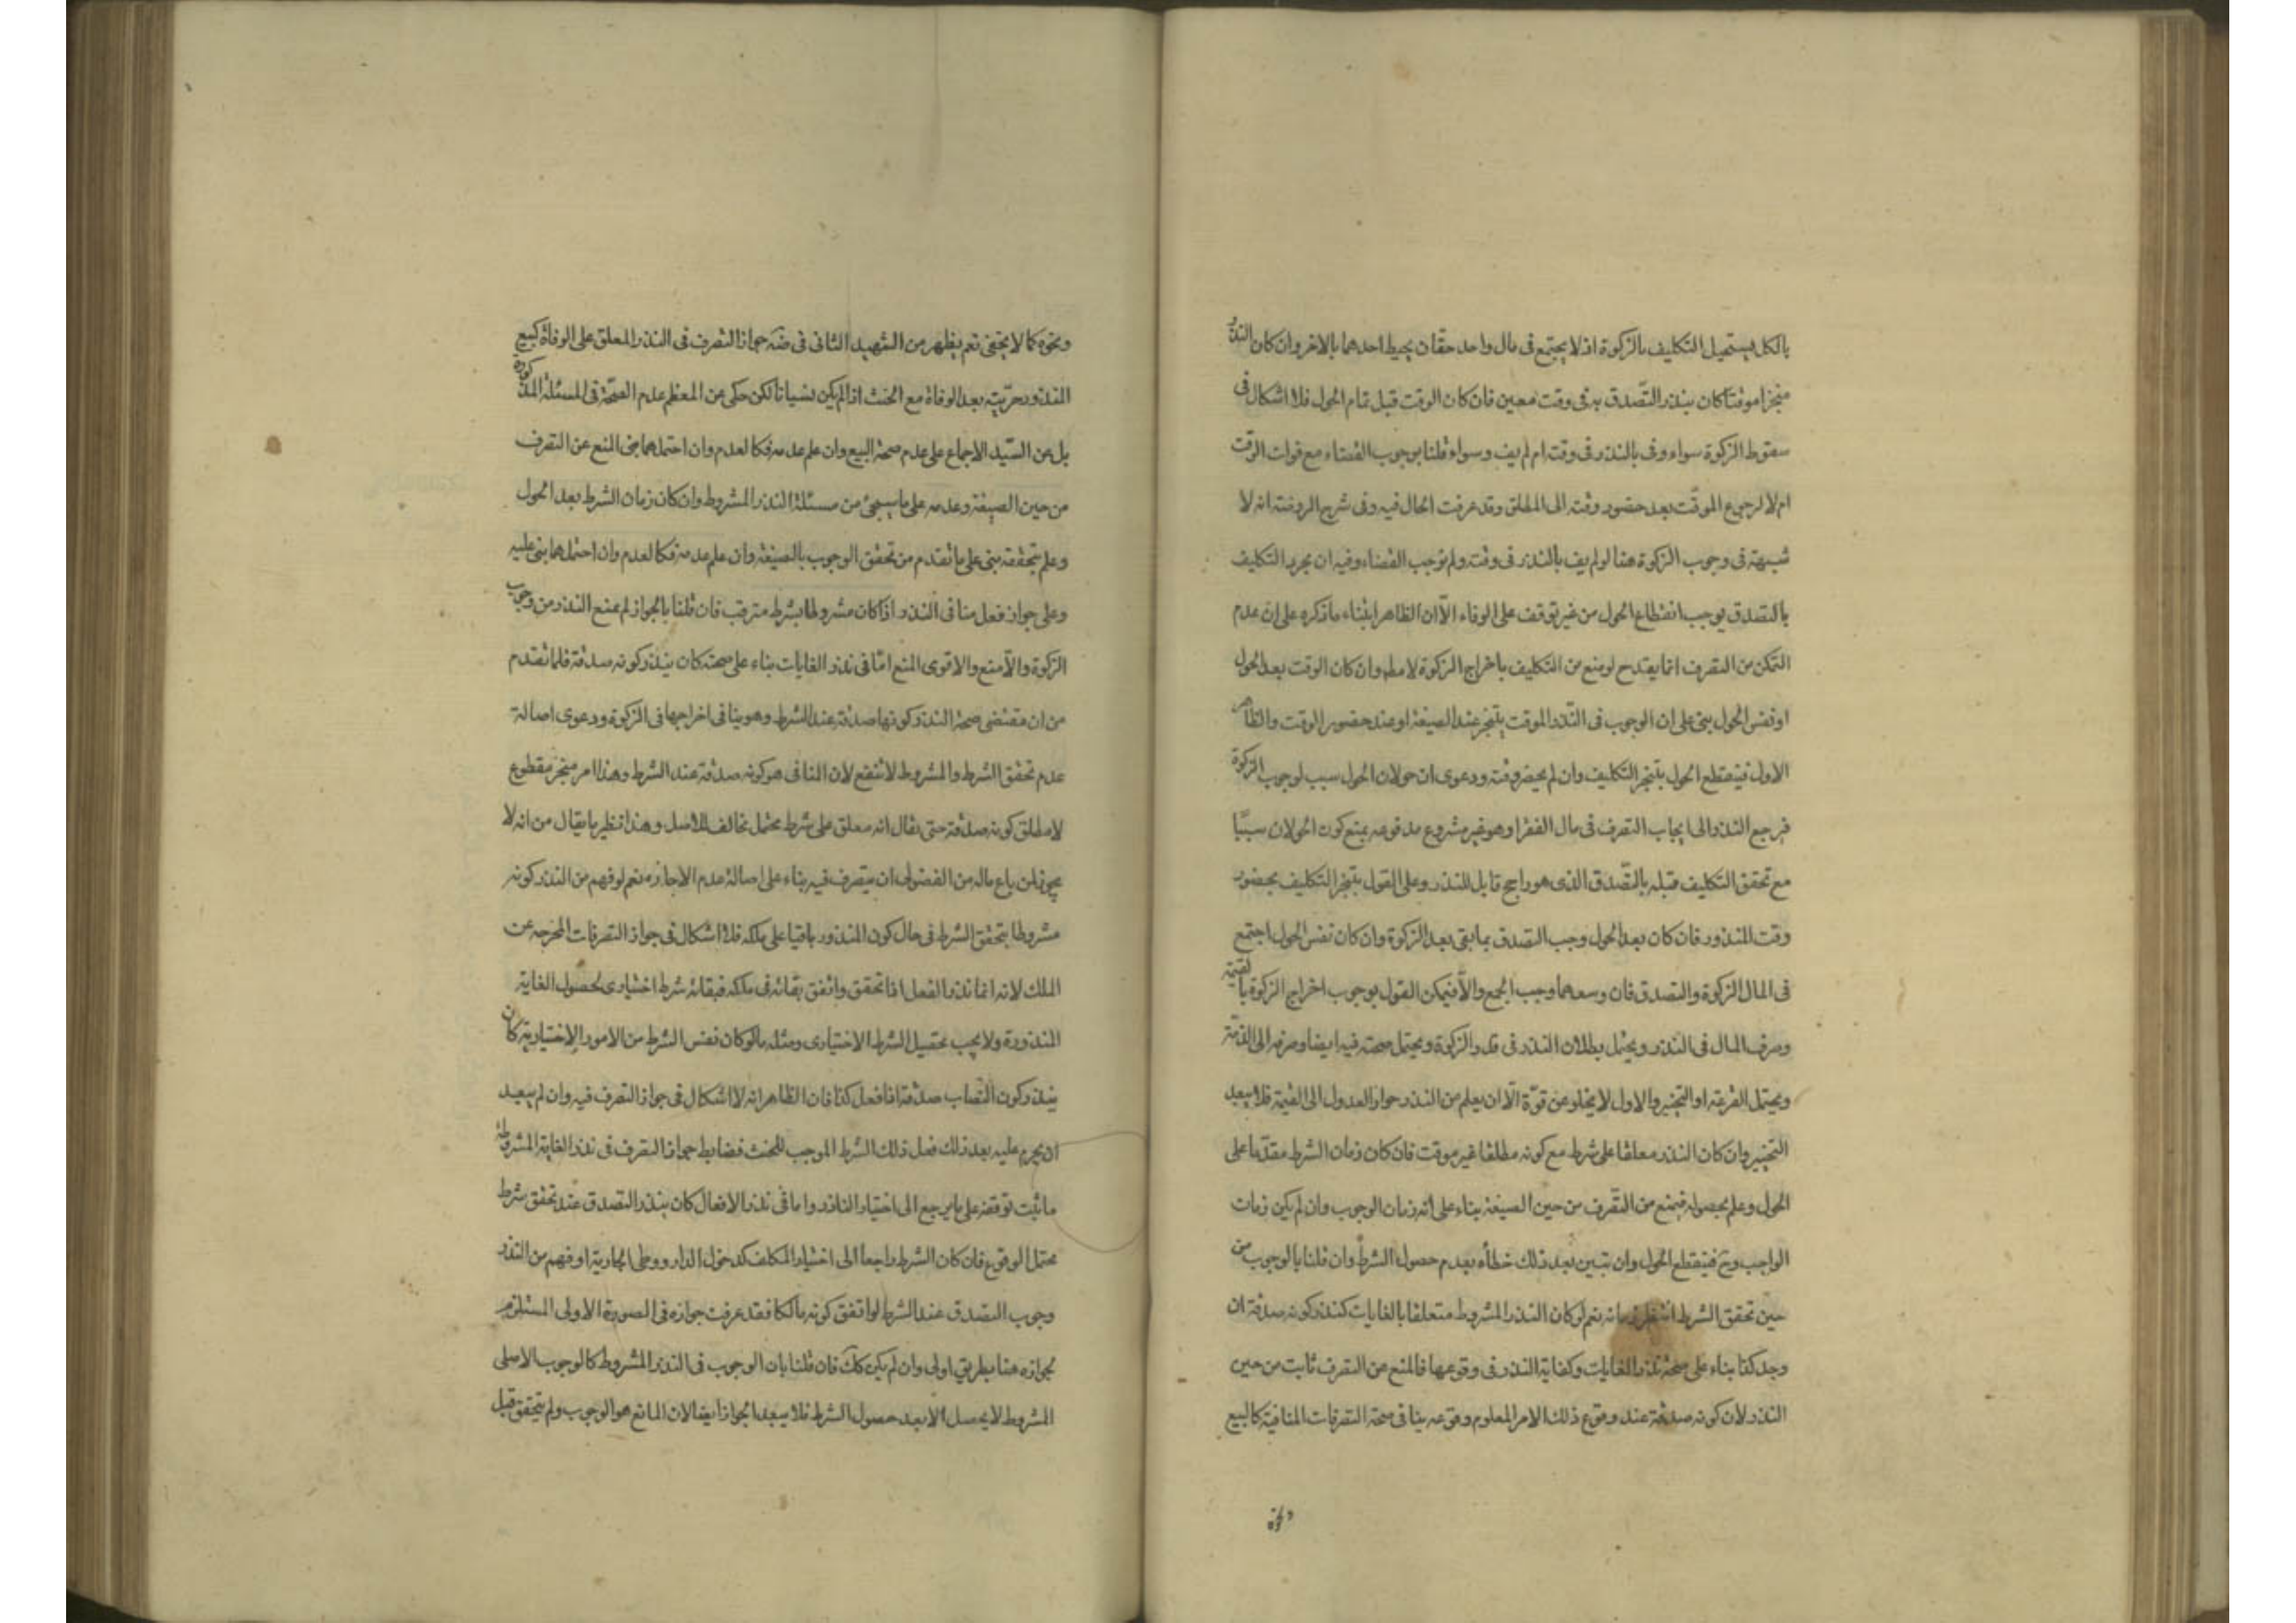 بالكل فيستحيل التكليف بالزكوة اذ لا يجتمع فى مال واحد حقان يحيط احدهما بالاخر وان كان النذر
منجزا موقتا كان ينذر التصدق به فى وقت معين فان كان الوقت قبل تمام الحول فلا اشكال فى
سقوط الزكوة سواء وفى بالنذر فى وقته ام لم يف وسواء قلنا بوجوب القضاء مع فوات الوقت
ام لا لرجوع الموقت بعد حضور وقته الى المطلق وقد عرفت الحال فيه وفى شرح الروضة انه لا
شبهة فى وجوب الزكوة هنا لو لم يف بالنذر فى وقته ولم نوجب القضاء وفيه ان مجرد التكليف
بالتصدق يوجب انقطاع الحول من غير توقف على الوفاء الا ان الظاهر ابتناء ما ذكره على ان عدم
التمكن من التصرف انما يقدح لو منع من التكليف باخراج الزكوة لا مطه وان كان الوقت بعد الحول
او نفس الحول بنى على ان الوجوب فى النذر الموقت يتنجز عند الصيغة او عند حضور الوقت والظاهر
الاول فينقطع الحول بتنجز التكليف وان لم يحضر وقته ودعوى ان حولان الحول سبب لوجوب الزكوة
فيرجع النذر الى ايجاب التصرف فى مال الفقرا وهو غير مشروع مدفوعه بمنع كون الحولان سببا
مع تحقق التكليف قبله بالتصدق الذى هو راجح قابل للنذر وعلى القول بتنجز التكليف بحضور
وقت المنذور فان كان بعد الحول وجب التصدق بما بقى بعد الزكوة وان كان نفس الحول اجتمع
فى المال الزكوة والتصدق فان وسعهما وجب الجمع والا فيمكن القول بوجوب اخراج الزكوة بالقيمة
وصرف المال فى النذر ويحتمل بطلان النذر فى قدر الزكوة ويحتمل صحته فيه ايضا وصرفه الى الذمة
ويحتمل القرعة او التخيير والاول لا يخلو عن قوة الا ان يعلم من النذر جواز العدول الى القيمة فلا يبعد
التخيير وان كان النذر معلقا على شرط مع كونه مطلقا غير موقت فان كان زمان الشرط مقدما على
الحول وعلم بحصوله فيمنع من التصرف من حين الصيغة بناء على انه زمان الوجوب وان لم يكن زمان
الواجب وح فينقطع الحول وان تبين بعد ذلك خطأه بعدم حصول الشرط وان قلنا بالوجوب من
حين تحقق الشرط انتظر زمانه نعم لو كان النذر المشروط متعلقا بالغايات كنذر كونه صدقة ان
وجد كذا بناء على صحة نذر الغايات وكفاية النذر فى وقوعها فالمنع من التصرف ثابت من حين
النذر لان كونه صدقة عند وقوع ذلك الامر المعلوم وقوعه ينافى صحة التصرفات المنافية كالبيع
ونحوه
ونحوه كما لا يخفى نعم يظهر من الشهيد الثانى فى ضه جواز التصرف فى النذر المعلق على الوفاة كبيع
المنذور حريته بعد الوفاة مع الحنث اذا لم يكن نسيانا لكن حكى عن المعظم عدم الصحة فى المسئلة المذكورة
بل عن السيد الاجماع على عدم صحة البيع وان علم عدمه فكالعدم وان احتملهما بنى المنع عن التصرف
من حين الصيغة وعدمه على ما سيجئ من مسئلة النذر المشروط وان كان زمان الشرط بعد الحول
وعلم بتحققه بنى على ما تقدم من تحقق الوجوب بالصيغة وان علم عدمه فكالعدم وان احتملهما بنى عليه
وعلى جواز فعل منافى النذر اذا كان مشروطا بشرط مترقب فان قلنا بالجواز لم يمنع النذر من وجوب
الزكوة والا منع والاقوى المنع اما فى نذر الغايات بناء على صحته كان ينذر كونه صدقة فلما تقدم
من ان مقتضى صحة النذر كونها صدقة عند الشرط وهو ينافى اخراجها فى الزكوة ودعوى اصالة
عدم تحقق الشرط والمشروط لا تنفع لان المنافى هو كونه صدقة عند الشرط وهذا امر منجز مقطوع
لا مطلق كونه صدقة حتى يقال انه معلق على شرط محتمل مخالف للاصل وهذا نظير ما يقال من انه لا
يجوز لمن باع ماله من الفضولى ان يتصرف فيه بناء على اصالة عدم الاجازه نعم لو فهم من النذر كونه
مشروطا بتحقق الشرط فى حال كون المنذور باقيا على ملكه فلا اشكال فى جواز التصرفات المخرجه عن
الملك لانه انما نذر الفعل اذا تحقق واتفق بقائه فى ملكه فبقائه شرط اختيارى لحصول الغاية
المنذورة ولا يجب تحصيل الشرط الاختيارى ومثله ما لو كان نفس الشرط من الامور الاختيارية كان
ينذر كون النصاب صدقة اذا فعل كذا فان الظاهر انه لا اشكال فى جواز التصرف فيه وان لم يبعد
ان يحرم عليه بعد ذلك فعل ذلك الشرط الموجب للحنث فضابط جواز التصرف فى نذر الغاية المشروطة
ما ثبت توقفه على ما يرجع الى اختيار الناذر واما فى نذر الافعال كان ينذر التصدق عند تحقق شرط
محتمل الوقوع فان كان الشرط راجعا الى اختيار المكلف كدخول الدار ووطى الجارية او فهم من النذر
وجوب التصدق عند الشرط لو اتفق كونه مالكا فقد عرفت جوازه فى الصورة الاولى المستلزم
لجوازه هنا بطريق اولى وان لم يكن كك فان قلنا بان الوجوب فى النذر المشروط كالوجوب الاصلى
المشروط لا يحصل الا بعد حصول الشرط فلا يبعد الجواز ايضا لان المانع هو الوجوب ولم يتحقق قبل